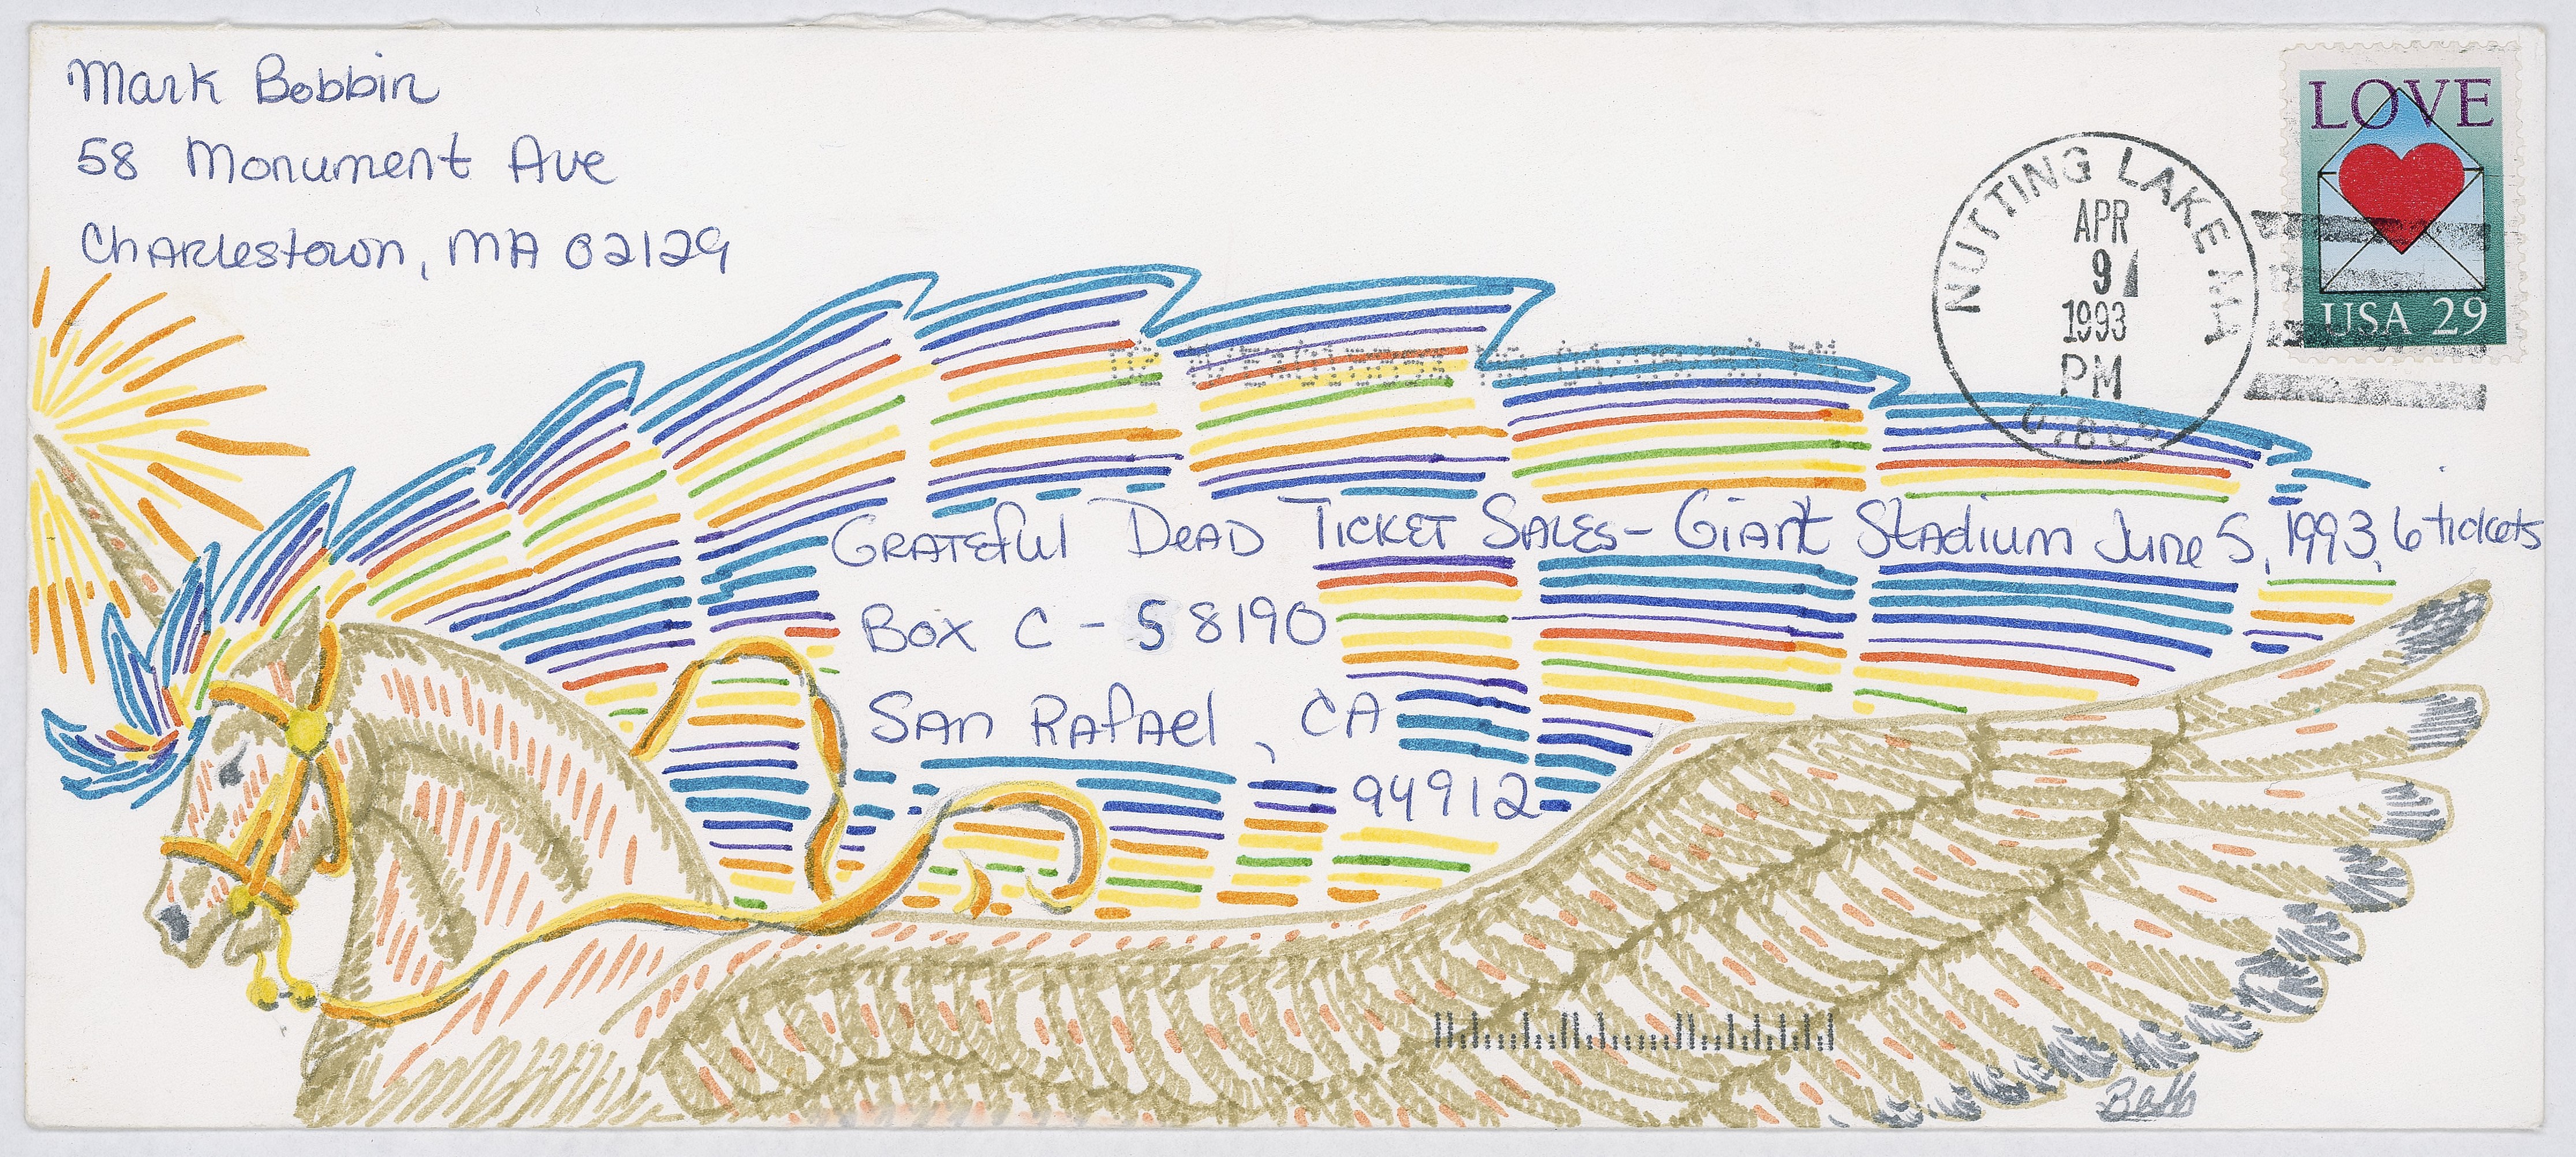 Mark Bobbin
58 Monument Ave
Charlestown, MA 02129
LOVE
USA 29
NUTTING LAKE MA
APR
9
1993
PM
Grateful Dead Ticket Sales - Giant Stadium June 5, 1993, 6 tickets
Box C - S 8190
San Rafael, CA
94912
Beth